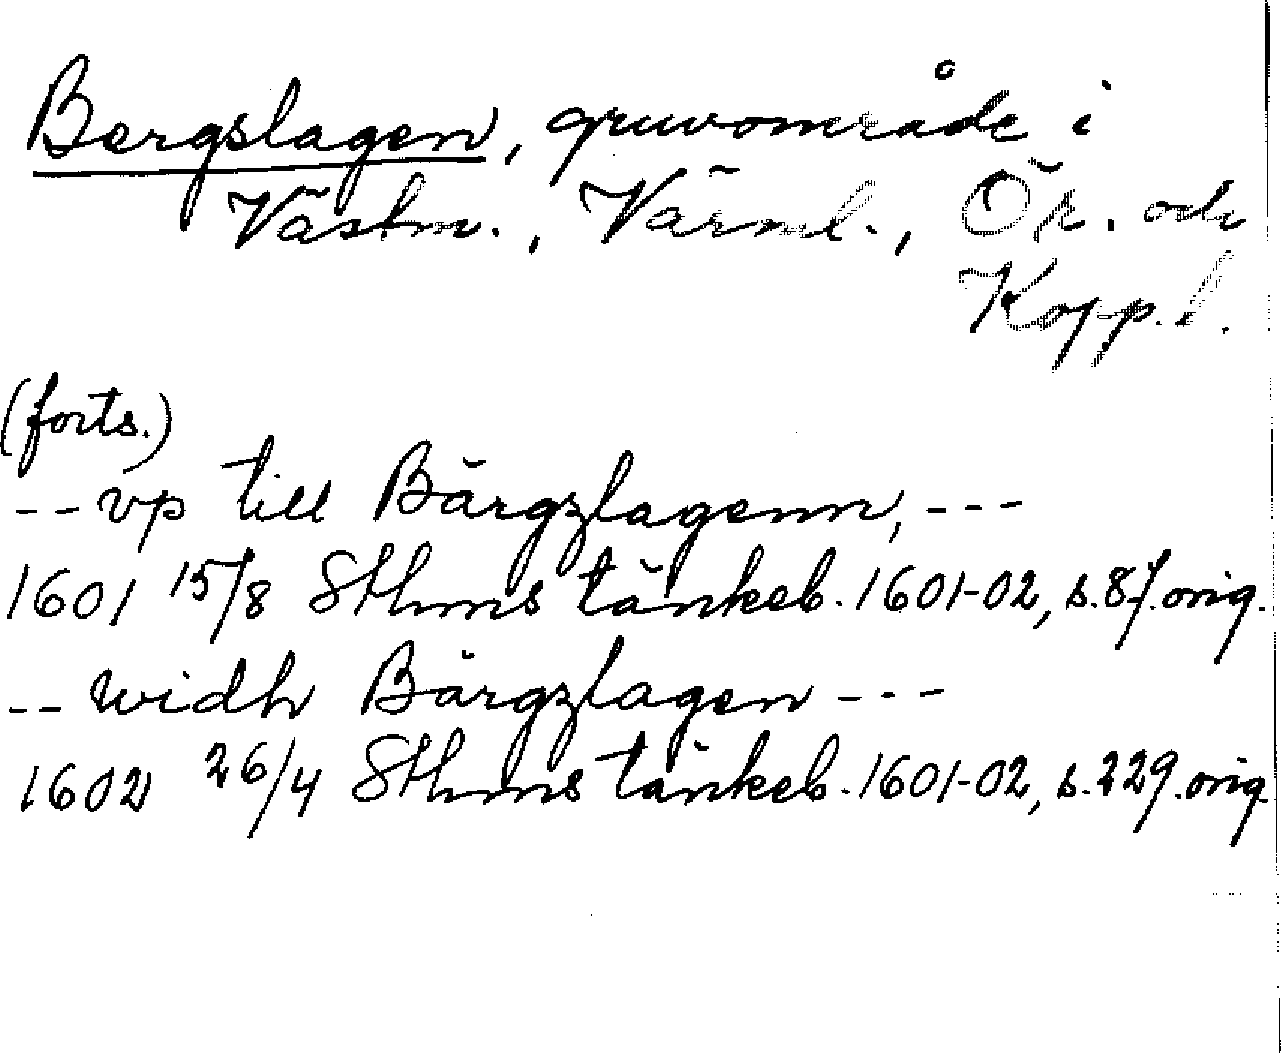 Bergslagen, gruvområde i
Västm., Värml., Ör. och
Kopp. l.
(forts.)
-- vp till Bärgzlagenn, ---
1601 15/8 Sthms tänkeb. 1601-02, s.87. orig.
-- widh Bärgzlagen ---
1602 26/4 Sthms tänkeb. 1601-02, s.229. orig.